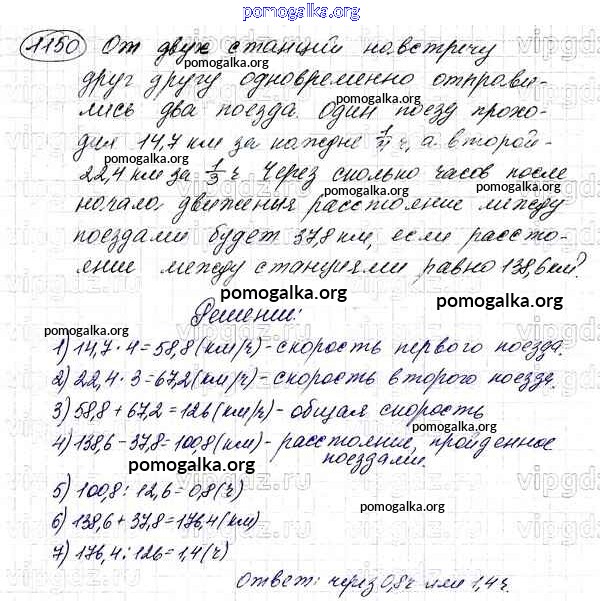 pomogalka.org
1150 От двух станций навстречу
друг другу одновременно отправи-
лись два поезда. Один поезд прохо-
дил 14,7 км за каждые 1/4 ч, а второй-
22,4 км за 1/3 ч. Через сколько часов после
начала движения расстояние между
поездами будет 37,8 км, если расстоя-
ение между станциями равно 138,6 км?
Решение:
1) 14,7 · 4 = 58,8 (км/ч) - скорость первого поезда.
2) 22,4 · 3 = 67,2 (км/ч) - скорость второго поезда.
3) 58,8 + 67,2 = 126 (км/ч) - общая скорость
4) 138,6 - 37,8 = 100,8 (км) - расстояние, пройденное
поездами.
5) 100,8 : 12,6 = 0,8 (ч)
6) 138,6 + 37,8 = 176,4 (км)
7) 176,4 : 126 = 1,4 (ч)
Ответ: через 0,8 ч или 1,4 ч.